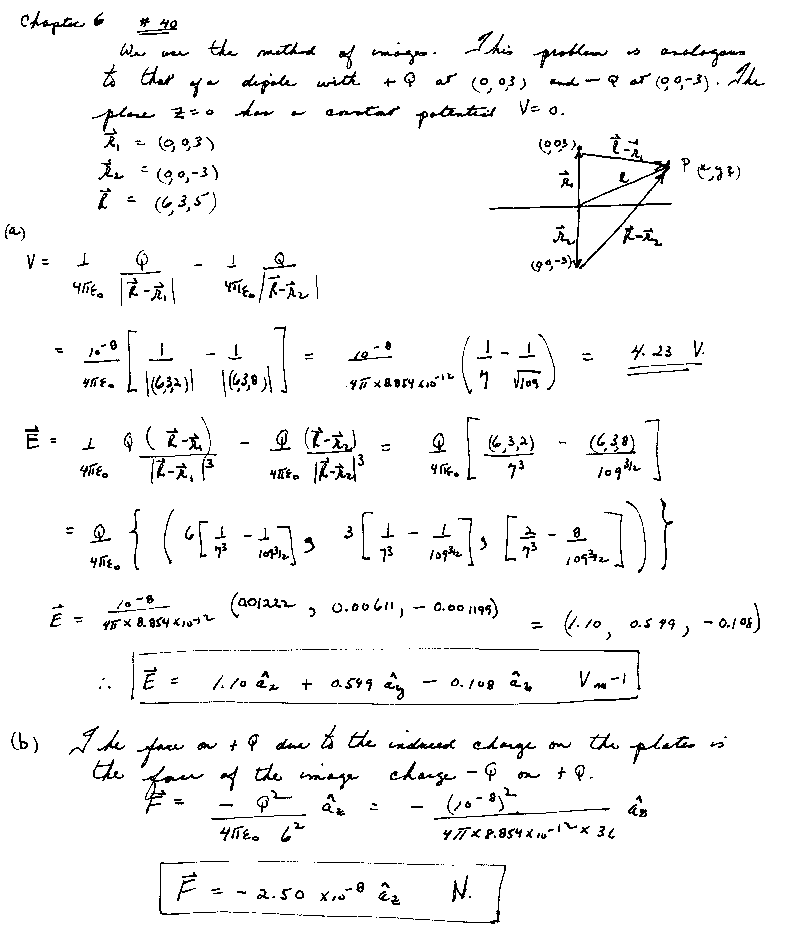 Chapter 6 # 40
We use the method of images. This problem is analogous
to that of a dipole with +Q at (0,0,3) and -Q at (0,0,-3). The
plane z=0 has a constant potential V=0.
r⃗₁ = (0,0,3)
r⃗₂ = (0,0,-3)
R⃗ = (6,3,5)
(0,0,3) R⃗-r⃗₁
r⃗₁ R P (x,y,z)
r⃗₂ R⃗-r⃗₂
(0,0,-3)
(a)
V = 1/4πε₀ Q/|R⃗-r⃗₁| - 1/4πε₀ Q/|R⃗-r⃗₂|
= 10⁻⁸/4πε₀ [1/|(6,3,2)| - 1/|(6,3,8)|] = 10⁻⁸/4π×8.854×10⁻¹² (1/7 - 1/√109) = 4.23 V.
E⃗ = 1/4πε₀ Q(R⃗-r⃗₁)/|R⃗-r⃗₁|³ - Q/4πε₀ (R⃗-r⃗₂)/|R⃗-r⃗₂|³ = Q/4πε₀ [(6,3,2)/7³ - (6,3,8)/109^3/2]
= Q/4πε₀ {(6[1/7³ - 1/109^3/2], 3[1/7³ - 1/109^3/2], [2/7³ - 8/109^3/2])}
E⃗ = 10⁻⁸/4π×8.854×10⁻¹² (0.01222, 0.00611, -0.001199) = (1.10, 0.549, -0.108)
∴ E⃗ = 1.10 âₓ + 0.549 â_y - 0.108 â_z V m-1
(b) The force on +Q due to the induced charge on the plates is
the force of the image charge -Q on +Q.
F⃗ = -Q²/4πε₀ 6² â_z = -(10⁻⁸)²/4π×8.854×10⁻¹²×36 â_z
F⃗ = -2.50 ×10⁻⁸ â_z N.